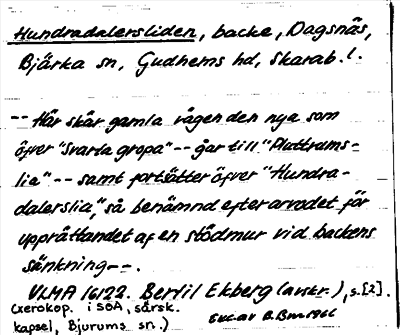 Hundradalersliden, backe, Dagsnäs,
Bjärka sn, Gudhems hd, Skarab. l.
-- Här skär gamla vägen den nya som
öfver "Svarta gropa" -- går till "Pluttrums-
lia" -- samt fortsätter öfver "Hundra-
dalerslia", så benämnd efter arvodet för
upprättandet af en stödmur vid backens
sänkning --.
VLMA 16122. Bertil Ekberg (avskr.), s. [2].
(Xerokop. i SOA, särsk.
kapsel, Bjurums sn.)
Exc. av B. Bm 1966